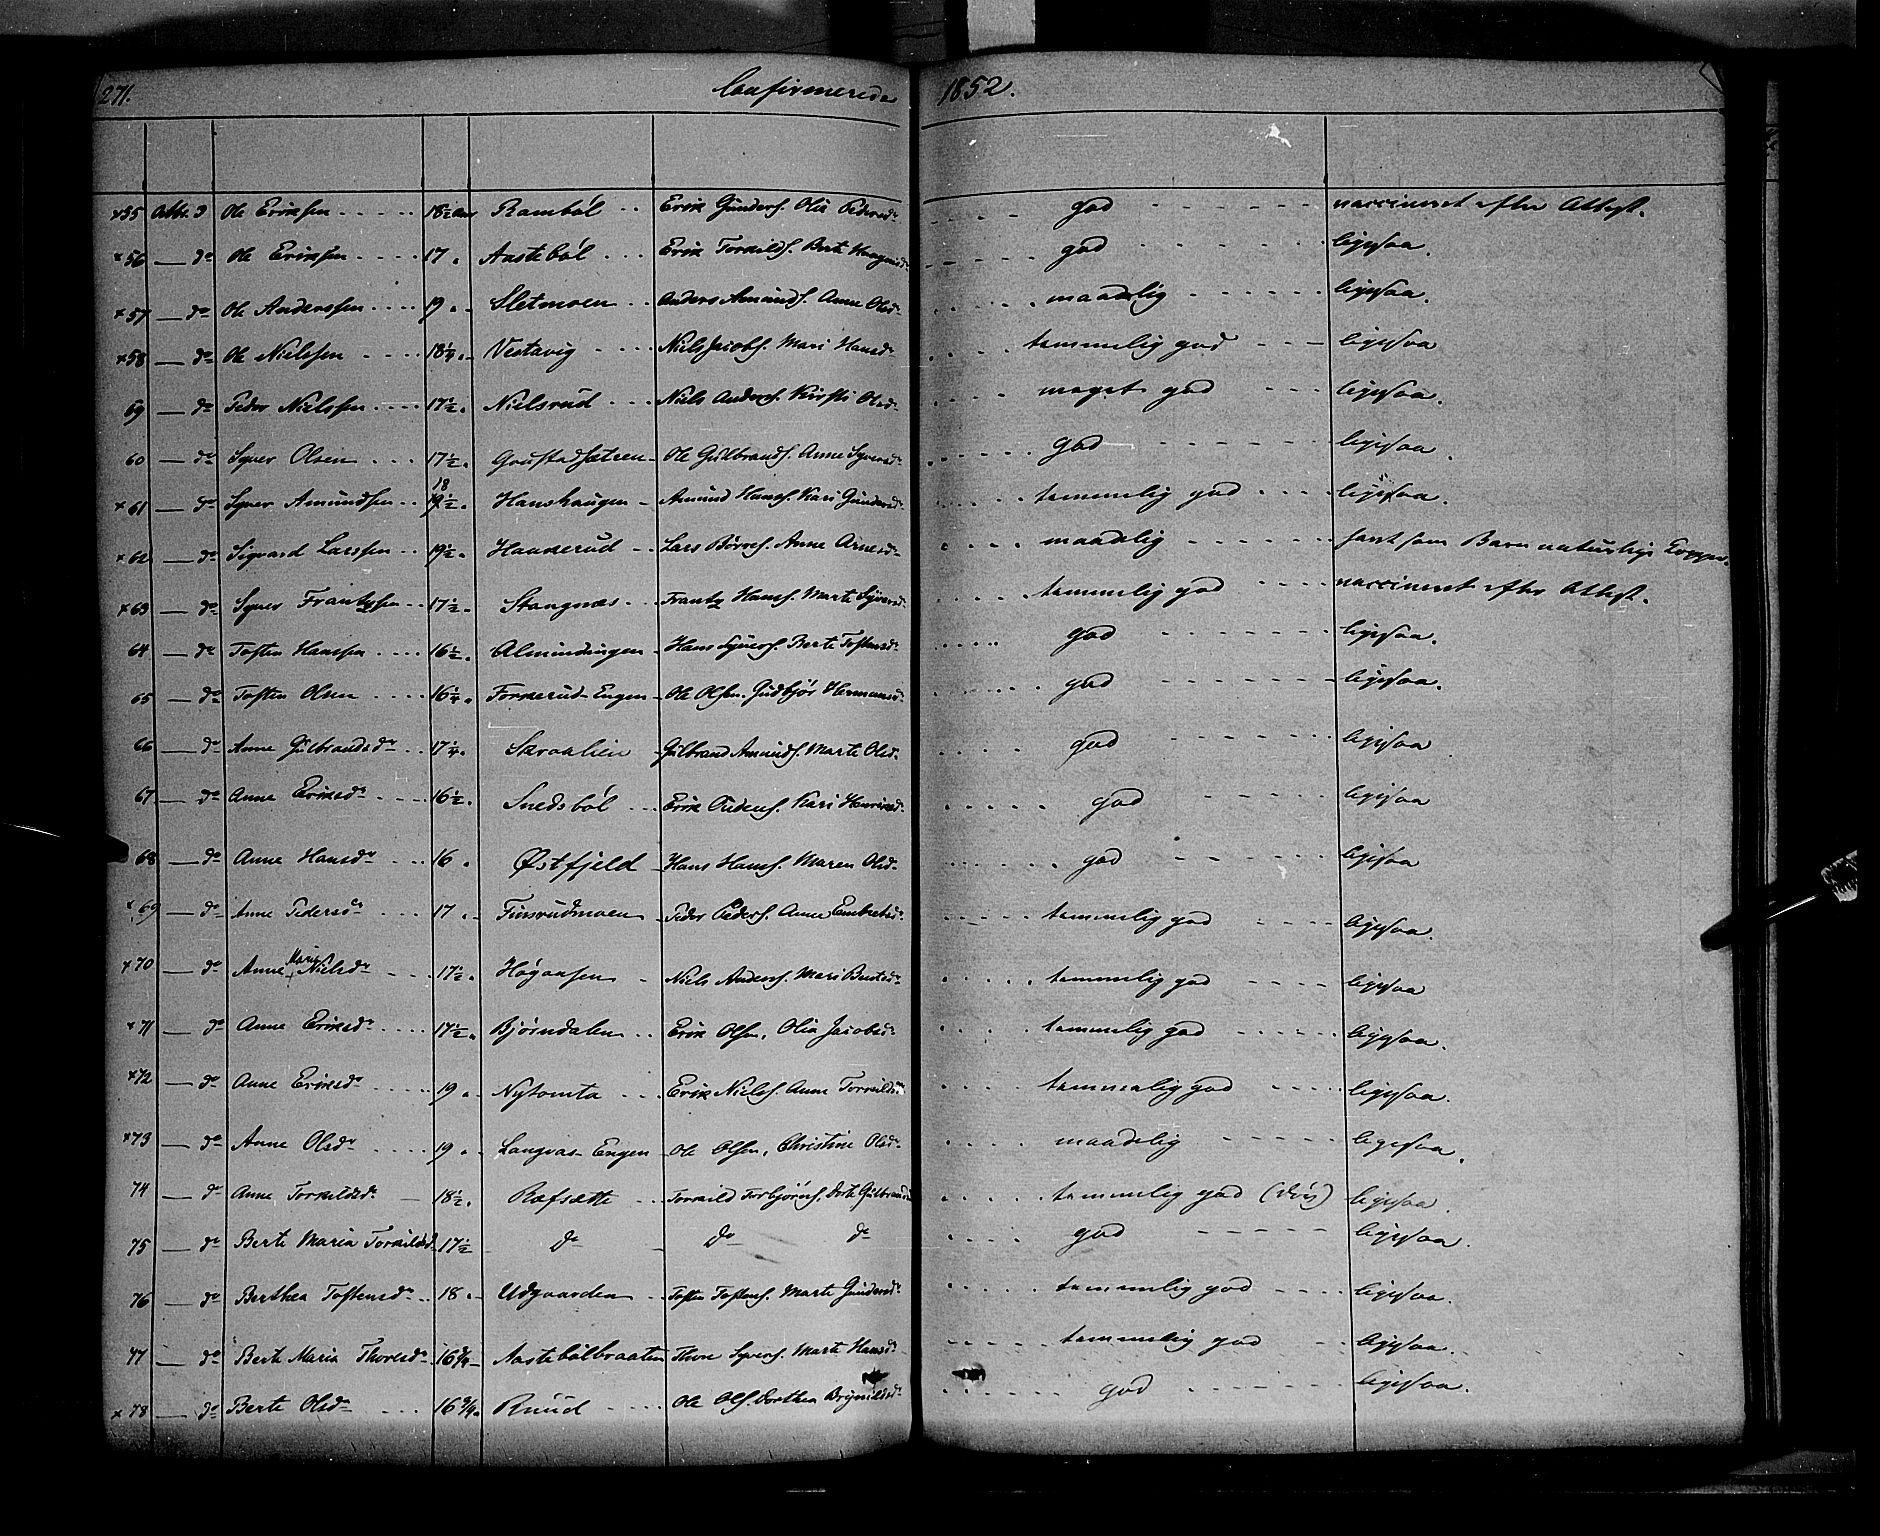 271. Confirmerede 1852.
×55 Octbr. 3 Ole Eriksen 18½ aar Rambøl Erik Gunders. Olia Pedersdr god vaccineret efter Attest.
×56 — do Ole Eriksen 17 Aastebøl Erik Torkilds. Berte Haagensdr god ligesaa.
×57 — do Ole Anderssen 19 Sletmoen Anders Amunds. Anne Olsdr maadelig ligesaa.
×58 — do Ole Nielssen 18¼ Vestavig Niels Jacobs. Mari Hansdr temmelig god ligesaa
59 — do Peder Nielssen 17½ Nielsrud Niels Anders. Kirsti Olsdr meget god ligesaa.
60 — do Syver Olsen 17½ Goustadsætren Ole Gulbrands. Anne Syversdr god ligesaa.
×61 — do Syver Amundsen 18 19½ Hanshaugen Amund Hans. Kari Gundersdr temmelig god ligesaa.
×62 — do Sigvard Larssen 19½ Haakerud Lars Børres. Anne Arnesdr maadelig havt som Barn naturlige Kopper.
×63 — do Syver Frantzsen 17½ Stangnæs Frantz Hans. Marte Syversdr temmelig god vaccineret efter Attest.
64 — do Tosten Hanssen 16½ Almindingen Hans Syvers. Berte Tostensdr god ligesaa.
65 — do Tosten Olsen 16¼ Forkerud-Engen Ole Olsen. Gudbjør Hermansdr god ligesaa.
66 — do Anne Gulbrandsdr 17¼ Skraalien Gulbrand Amunds. Marte Olsdr god ligesaa
67 — do Anne Eriksdr 16½ Snedsbøl Erik Peders. Kari Henriksdr god ligesaa
68 — do Anne Hansdr 16 Østfjeld Hans Hans. Maren Olsdr god ligesaa
×69 — do Anne Pedersdr 17 Finsrudmoen Peder Peders. Anne Embretsdr temmelig god ligesaa.
×70 — do Anne Marie Nielsdr 17½ Høgaasen Niels Anders. Mari Bentsdr temmelig god ligesaa
×71 — do Anne Eriksdr 17½ Bjørndalen Erik Olsen, Olia Jacobsdr temmelig god ligesaa.
×72 — do Anne Eriksdr 19 Nytomta Erik Niels. Anne Torkildsdr temmelig god ligesaa.
×73 — do Anne Olsdr 19 Langvas-Engen Ole Olsen, Christine Olsdr maadelig ligesaa.
74 — do Anne Torkildsdr 18½ Ræfsætte Torkild Torbjørns, Dorte Gulbrandsdr temmelig god (døv) ligesaa.
75 — do Berte Maria Torkildsd 17½ do do do god ligesaa.
76 — do Berthea Tostensdr 18 Udgaarden Tosten Tostens. Marte Gundersdr temmelig god ligesaa.
77 — do Berte Maria Thoresdr 16¾ Aastebølbraaten Thore Syvers. Marte Hansdr temmelig god ligesaa.
×78 — do Berte Olsdr 16¾ Ruud Ole Ols. Dorthea Brynildsdr god ligesaa.